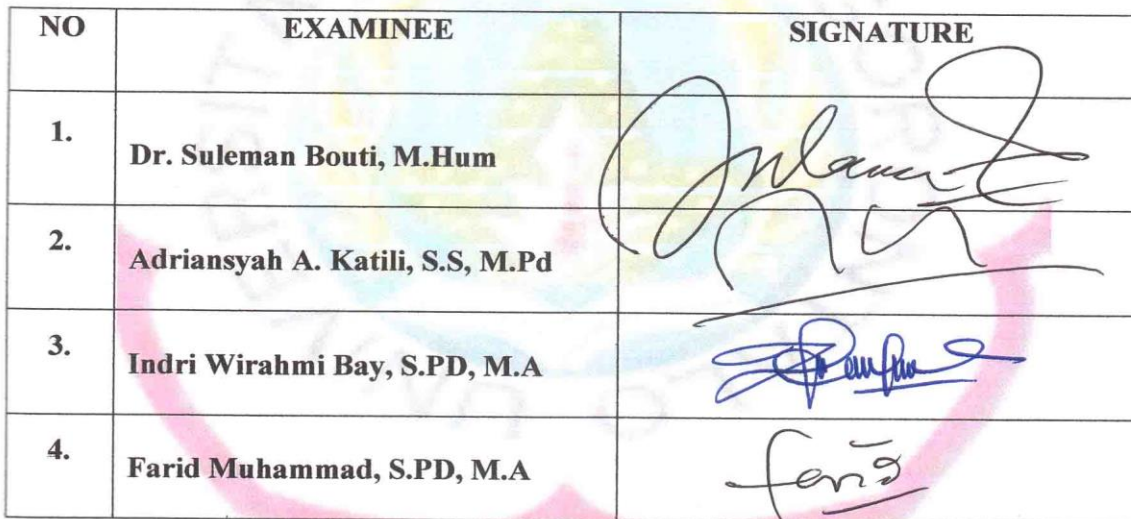 NO EXAMINEE SIGNATURE
1. Dr. Suleman Bouti, M.Hum
2. Adriansyah A. Katili, S.S, M.Pd
3. Indri Wirahmi Bay, S.PD, M.A
4. Farid Muhammad, S.PD, M.A farid